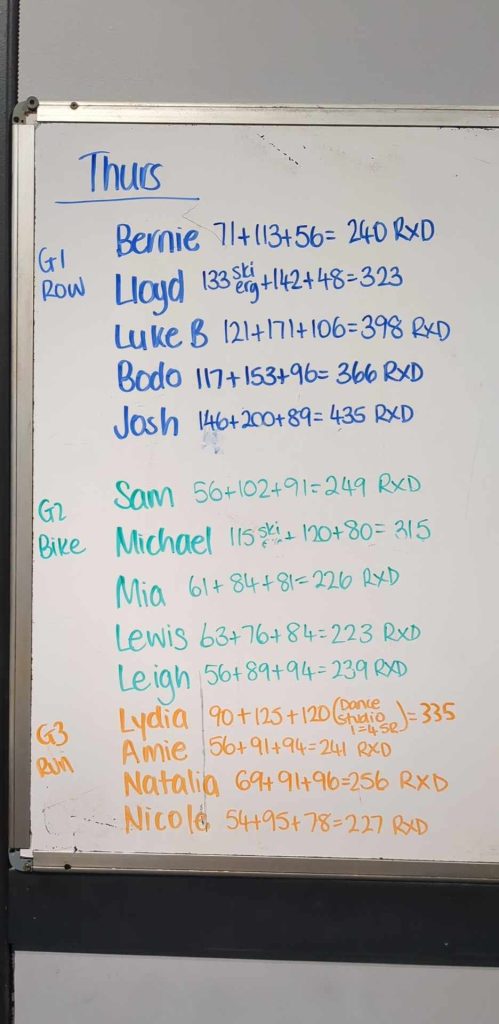 Thurs
G1
Row
Bernie 71+113+56= 240 RxD
Lloyd 133 ski erg +142+48=323
Luke B 121+171+106=398 RxD
Bodo 117+153+96= 366 RxD
Josh 146+200+89= 435 RxD
G2
Bike
Sam 56+102+91=249 RxD
Michael 115 ski + 120+80= 315
Mia 61+84+81=226 RxD
Lewis 63+76+84=223 RxD
Leigh 56+89+94=239 RxD
G3
Run
Lydia 90+125+120 (Dance studio 1=4SR) =335
Amie 56+91+94=241 RxD
Natalia 69+91+96=256 RxD
Nicole 54+95+78=227 RxD